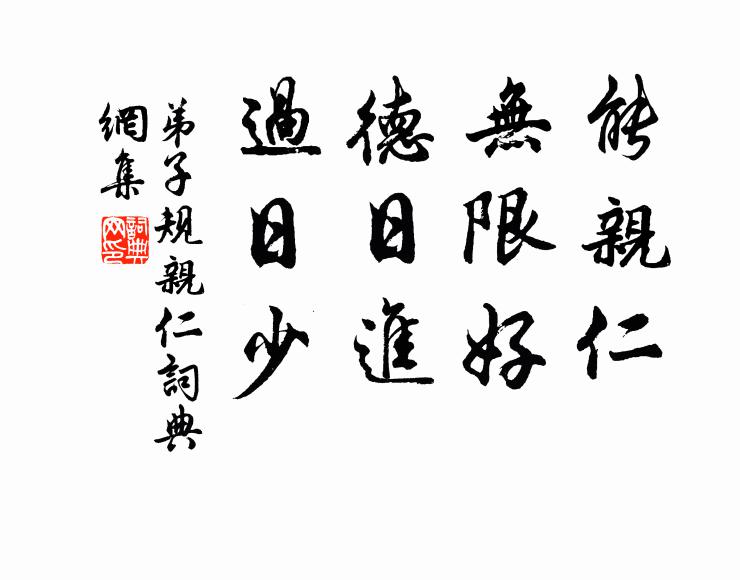 能親仁
無限好
德日進
過日少
弟子規親仁詞典
網集
詞典
网印